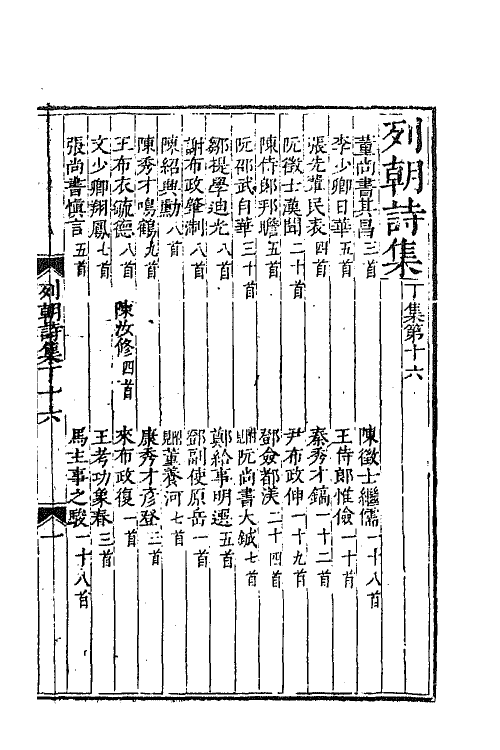 列朝詩集丁集第十六
董尚書其昌三首
陳徵士繼儒一十八首
李少卿日華五首
王侍郎惟儉一十首
張先輩民表四首
秦秀才鎬一十二首
阮徵士漢聞二十首
尹布政伸一十九首
陳侍郎邦瞻五首
鄧僉都渼二十四首
阮邵武自華三十首
附阮尚書大鋮七首
鄒提學迪光八首
鄭給事明選五首
謝布政肇淛八首
鄧副使原岳一首
陳紹興勳八首
附董養河七首
陳秀才鳴鶴九首
康秀才彥登三首
王布衣毓德八首
陳汝修四首
來布政復一首
文少卿翔鳳七首
王考功象春三首
張尚書慎言五首
馬主事之駿一十八首
列朝詩集丁十六
一